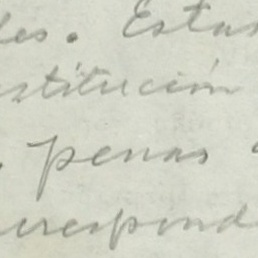 les. Estas
stitución
penas
correspond